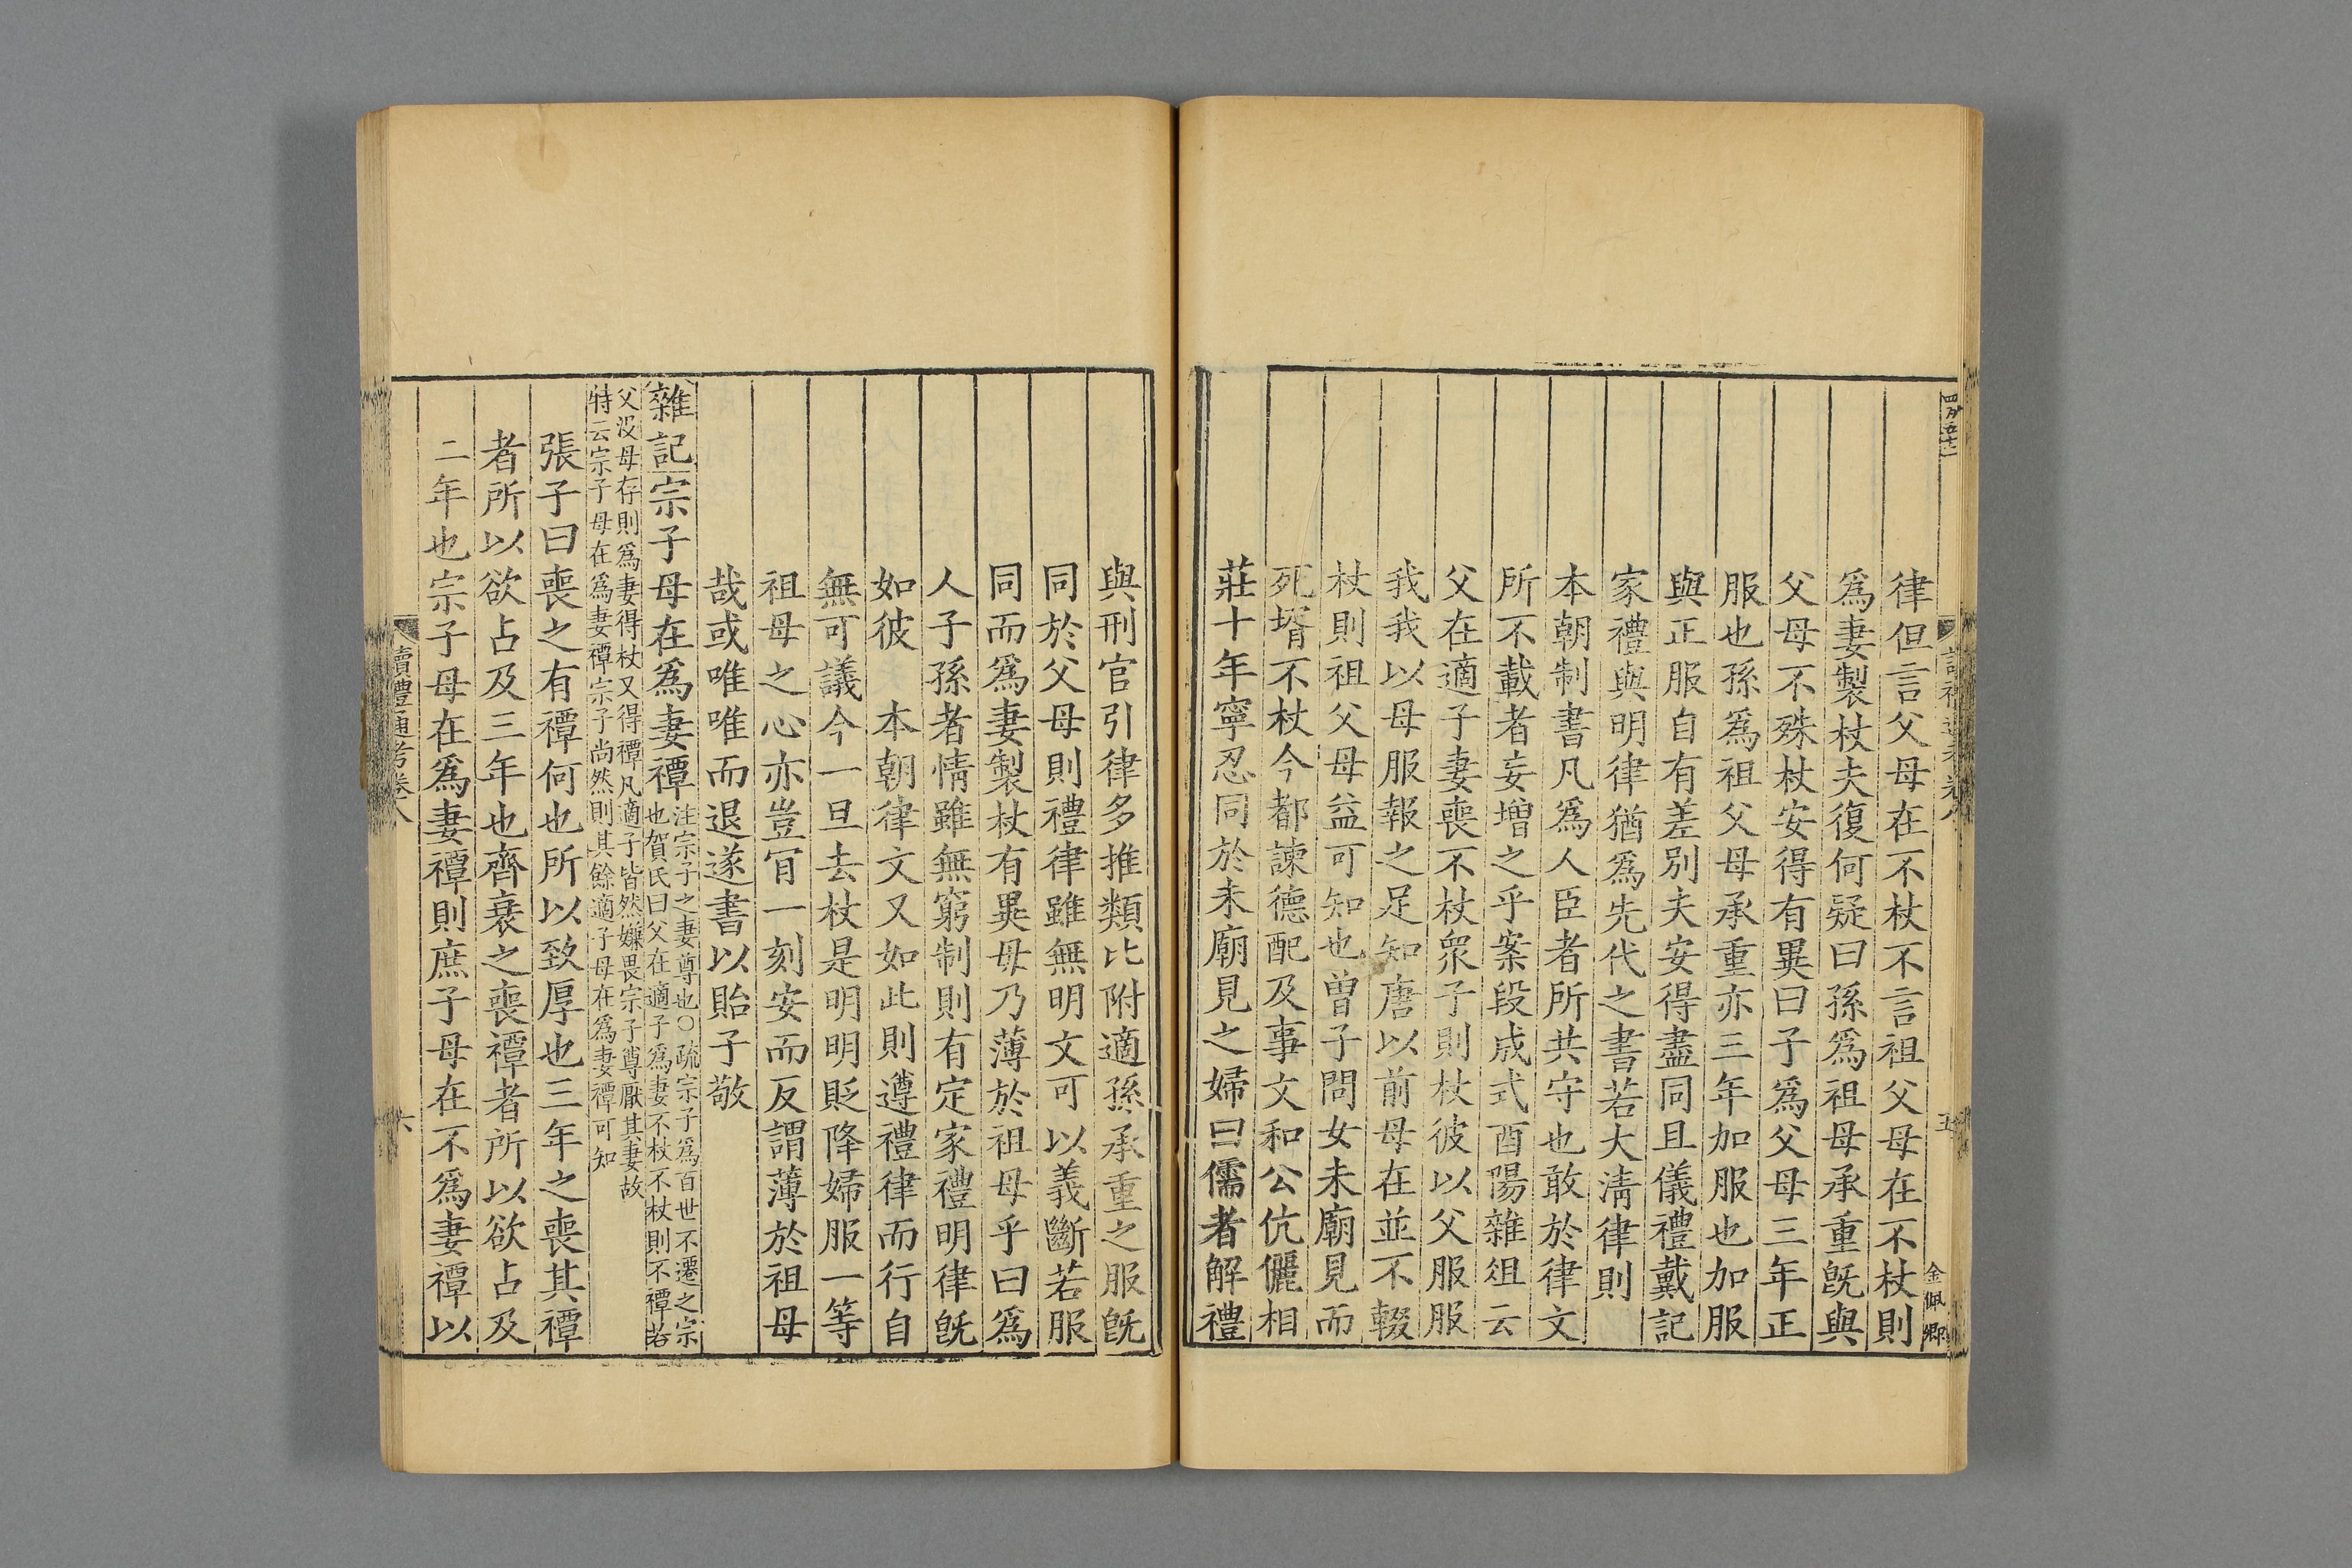 律但言父母在不杖不言祖父母在不杖則
爲妻製杖夫復何疑曰孫爲祖母承重旣與
父母不殊杖安得有異曰子爲父母三年正
服也孫爲祖父母承重亦三年加服也加服
與正服自有差別夫安得盡同且儀禮戴記
家禮與明律猶爲先代之書若大淸律則
本朝制書凡爲人臣者所共守也敢於律文
所不載者妄增之乎案段成式酉陽雜俎云
父在適子妻喪不杖衆子則杖彼以父服服
我我以母服報之足知唐以前母在並不輟
杖則祖父母益可知也曾子問女未廟見而
死壻不杖今都諫德配及事文和公伉儷相
莊十年寧忍同於未廟見之婦曰儒者解禮
金佩卿
五
與刑官引律多推類比附適孫承重之服旣
同於父母則禮律雖無明文可以義斷若服
同而爲妻製杖有異毋乃薄於祖母乎曰爲
人子孫者情雖無窮制則有定家禮明律旣
如彼 本朝律文又如此則遵禮律而行自
無可議今一旦去杖是明明貶降婦服一等
祖母之心亦豈肎一刻安而反謂薄於祖母
哉或唯唯而退遂書以貽子敬
雜記宗子母在爲妻禫
注宗子之妻尊也○疏宗子爲百世不遷之宗
也賀氏曰父在適子爲妻不杖不杖則不禫若
父没母存則爲妻得杖又得禫凡適子皆然嫌畏宗子尊厭其妻故
特云宗子母在爲妻禫宗子尚然則其餘適子母在爲妻禫可知
張子曰喪之有禫何也所以致厚也三年之喪其禫
者所以欲占及三年也齊衰之喪禫者所以欲占及
二年也宗子母在爲妻禫則庶子母在不爲妻禫以
讀禮通考卷八
六